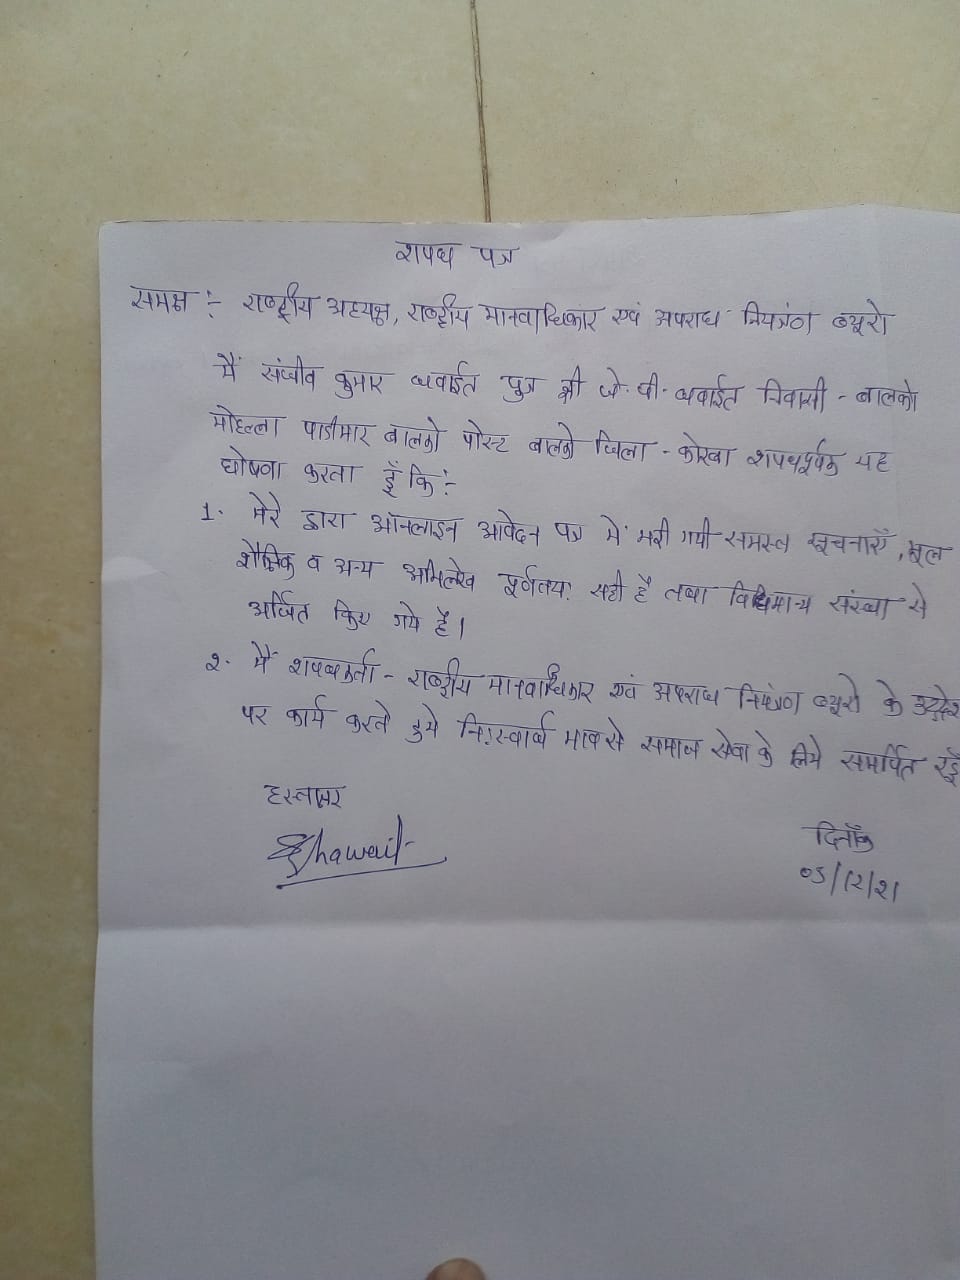 शपथ पत्र
समक्ष :- राष्ट्रीय अध्यक्ष, राष्ट्रीय मानवाधिकार एवं अपराध नियंत्रण ब्यूरो
मैं संजीव कुमार थवाईत पुत्र श्री जे. पी. थवाईत निवासी - बालको
मोहल्ला पाडीमार बालको पोस्ट बालको जिला - कोरबा शपथपूर्वक यह
घोषणा करता हूँ कि :-
1. मेरे द्वारा ऑनलाइन आवेदन पत्र में भरी गयी समस्त सूचनाएँ, मूल
शैक्षिक व अन्य अभिलेख पूर्णतयः सही है तथा विधिमान्य संस्था से
अर्जित किए गये है।
२. मैं शपथकर्ता - राष्ट्रीय मानवाधिकार एवं अपराध नियंत्रण ब्यूरो के उद्देश्य
पर कार्य करते हुये निःस्वार्थ भाव से समाज सेवा के लिये समर्पित रहूँ
हस्ताक्षर
दिनाँक
०5/12/21